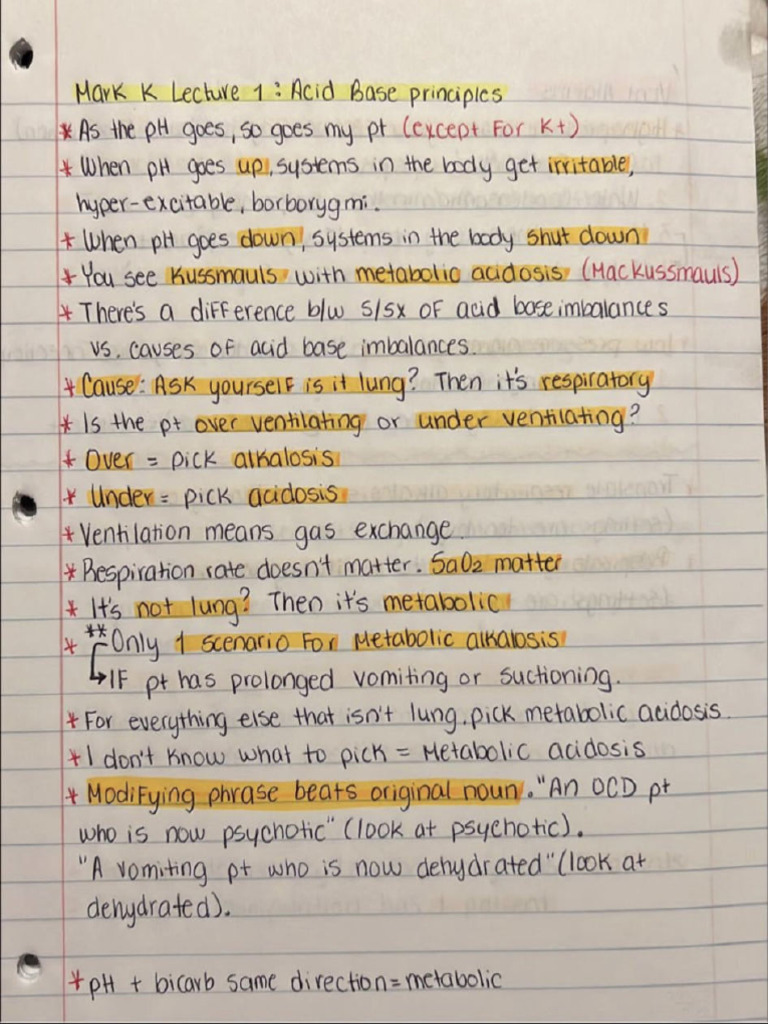 Mark K Lecture 1: Acid Base principles
* As the pH goes, so goes my pt (except For K+)
* When pH goes up, systems in the body get irritable,
hyper-excitable, borborygmi.
* When pH goes down, systems in the body shut down
* You see Kussmauls with metabolic acidosis (Mackussmauls)
* There's a difference b/w S/Sx of acid base imbalances
vs. causes of acid base imbalances.
* Cause: Ask yourself is it lung? Then it's respiratory
* Is the pt over ventilating or under ventilating?
* Over = pick alkalosis
* Under = pick acidosis
* Ventilation means gas exchange.
* Respiration rate doesn't matter. SaO2 matter
* It's not lung? Then it's metabolic
* ** Only 1 scenario For Metabolic alkalosis
→ IF pt has prolonged vomiting or suctioning.
* For everything else that isn't lung, pick metabolic acidosis.
* I don't know what to pick = Metabolic acidosis
* Modifying phrase beats original noun. "An OCD pt
who is now psychotic" (look at psychotic).
"A vomiting pt who is now dehydrated" (look at
dehydrated).
* pH + bicarb same direction = metabolic